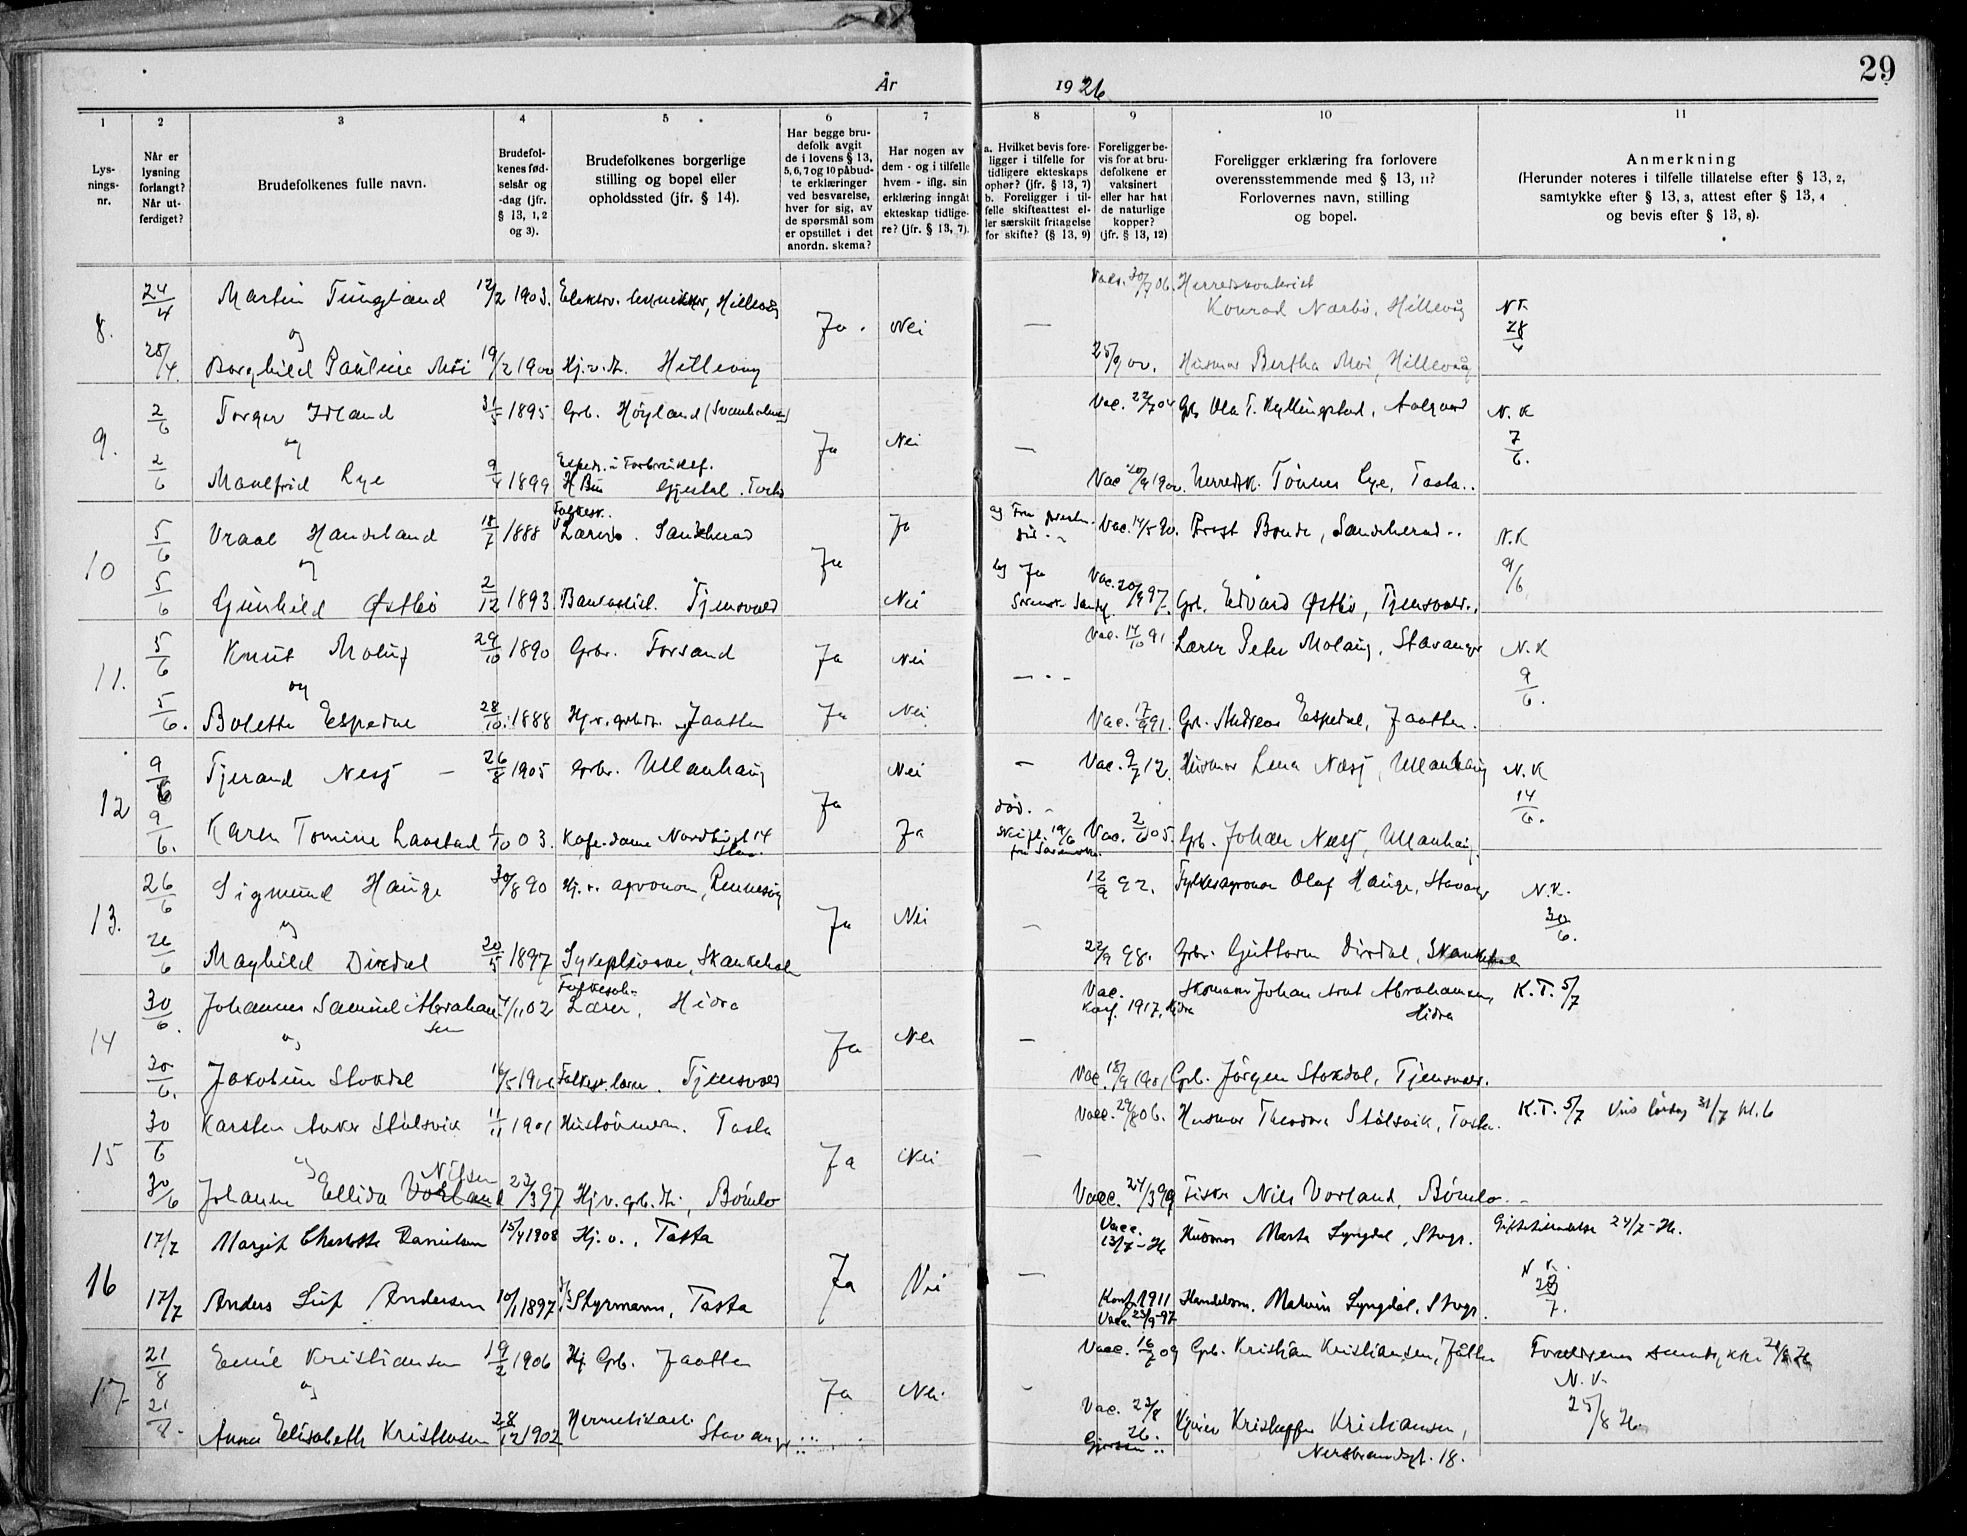 29
År 1926
1 2 3 4 5 6 7 8 9 10 11
Lys-
nings-
nr.
Når er
lysning
forlangt?
Når ut-
ferdiget?
Brudefolkenes fulle navn.
Brudefol-
kenes fød-
selsår og
-dag (jfr.
§ 13, 1, 2
og 3).
Brudefolkenes borgerlige
stilling og bopel eller
opholdssted (jfr. § 14).
Har begge bru-
defolk avgit
de i lovens § 13,
5, 6, 7 og 10 påbud-
te erklæringer
ved besvarelse,
hver for sig, av
de spørsmål som
er opstillet i det
anordn. skema?
Har nogen av
dem - og i tilfelle
hvem - iflg. sin
erklæring inngåt
ekteskap tidlige-
re? (jfr. § 13, 7).
a. Hvilket bevis fore-
ligger i tilfelle for
tidligere ekteskaps
ophør? (jfr. § 13, 7)
b. Foreligger i til-
felle skifteattest el-
ler særskilt fritagelse
for skifte? (§ 13, 9)
Foreligger be-
vis for at bru-
defolkene er
vaksinert
eller har hat
de naturlige
kopper?
(jfr. § 13, 12)
Foreligger erklæring fra forlovere
overensstemmende med § 13, 11?
Forlovernes navn, stilling
og bopel.
Anmerkning
(Herunder noteres i tilfelle tillatelse efter § 13, 2,
samtykke efter § 13, 3, attest efter § 13, 4
og bevis efter § 13, 8).
24/4 Martin Tungland 12/2 1903. Elektro. tekniker, Hillevåg Vacs. 30/7 06. Herredskontorist
Konrad Nærbö, Hillevåg
8. og Ja. Nei — N.K. 28/4
28/4. Borghild Pauline Moi 19/2 1900 Hj.v.m. Hillevaag 25/9 00. Husmor Bertha Moi, Hillevåg
2/6 Torger Idland 31/5 1895 Grb. Höyland (Svanholmen) Vac. 22/7 04 Grb. Ola T. Kyllingstad, Aalgaard N.K
9. og Ja Nei — 7/6.
2/6 Maalfrid Lye 9/4 1899 Gjesdal. Vac 20/9 1900. Herredsk. Tönnes Lye, Tasta..
5/6 Vraal Handeland 18/7 1888 Folkesk. Lærer. Sandeherad Ja Vac. 14/5 90. Prest Bonde, Sandeherad N.K
10 og Ja 9/6
5/6 Gunhild Østbö 2/12 1893 Tjensvold Nei b) Ja Vac. 20/9 97. Grb. Edvard Østbö, Tjensvold.
5/6 Knut Molaug 29/10 1890 Grbr. Forsand Ja Nei Vac. 14/10 91. Lærer Peter Molaug, Stavanger N.K
11. og 9/6.
5/6. Bolette Espedal 28/10. 1888 Hj.v. grb.dt. Jaatten Ja Nei Vac. 17/9 91. Grb. Andreas Espedal, Jaatten.
9/6 Tjerand Nesj — 26/8 1905 Grbr. Ullanhaug Nei — Vac. 9/7 12. Husmor Lena Næsj, Ullanhaug N.K
12 Ja 14/6.
9/6. Karen Tomine Laastad 1/10 03. Kafe-dame Nordbögt 14 Stav. Ja död. Vac. 2/6 05. Grb. Johan Næsj, Ullanhaug.
26/6 Sigmund Hauge 30/8 90 Hj.v. agronom, Rennesöy 12/9 92. Fylkesagronom Olaf Hauge, Stavanger N.K.
13. og Ja Nei — 30/6.
26/6 Maghild Dirdal 20/5 1897 Sykepleierske, Skankeholen 22/9 98. Grbr. Guttorm Dirdal, Skankeholen
30/6. Johannes Samuel Abrahamsen 7/11 02 Folkesk. Lærer, Hidra Vac. Konf. 1917, Hidra Skomann Johan Arnt Abrahamsen, Hidra K.T. 5/7
14 og Ja Nei —
30/6. Jakobine Stokdal 16/5 190 Folkesk. lærer. Tjensvold Vac. 18/9 1901 Grb. Jörgen Stokdal, Tjensvold.
30/6 Karsten Anker Stölsvik 11/11 1901 Hustömmerm. Tasta Vacc. 29/8 06. Husmor Theodora Stölsvik, Tasta. K.T. 5/7 Vies lördag 31/7 kl. 6
15 og Ja Nei —
30/6 Johanne Ellida Nilsen Vorland 23/3 97 Hj.v. grb.dt., Bömlo Vacc. 24/3 99 Fisker Nils Vorland, Bömlo.
17/7 Margit Charlotte Danielsen 15/4 1908 Hj.v., Tasta Vacc. 13/7 – H Husmor Marta Lyngdal, Stvgr. Giftetillatelse 24/7 – H.
16 Ja Nei — N.K. 28/7.
17/7 Anders Leif Andersen 10/1 1897 Styrmann, Tasta Konf. 1911 Vacc. 23/9-97 Handelsm. Malvin Lyngdal, Stvgr.
21/8 Emil Kristiansen 19/2 1906 Hj. Grb. Jaatten Vacc. 16/6 09 Grb. Kristian Kristiansen, Jåtten Foreldrenes samtykke 21/8 H
17 og Ja Nei. — N.K. 25/8 H.
21/8. Anna Elisabeth Kristensen 28/12 1902 Hermetikarb. Stavanger Vac. 23/8 26. Kristoffer Kristiansen,
Nersbrandsgt. 18.